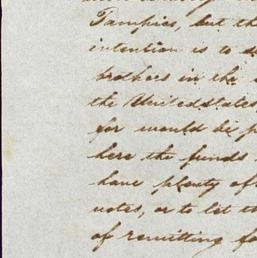 Tampico, but th
intention is to s
brothers in the
the Unitedstates
for would be p
here the funds
have plenty of
notes, or to let th
of remitting fo